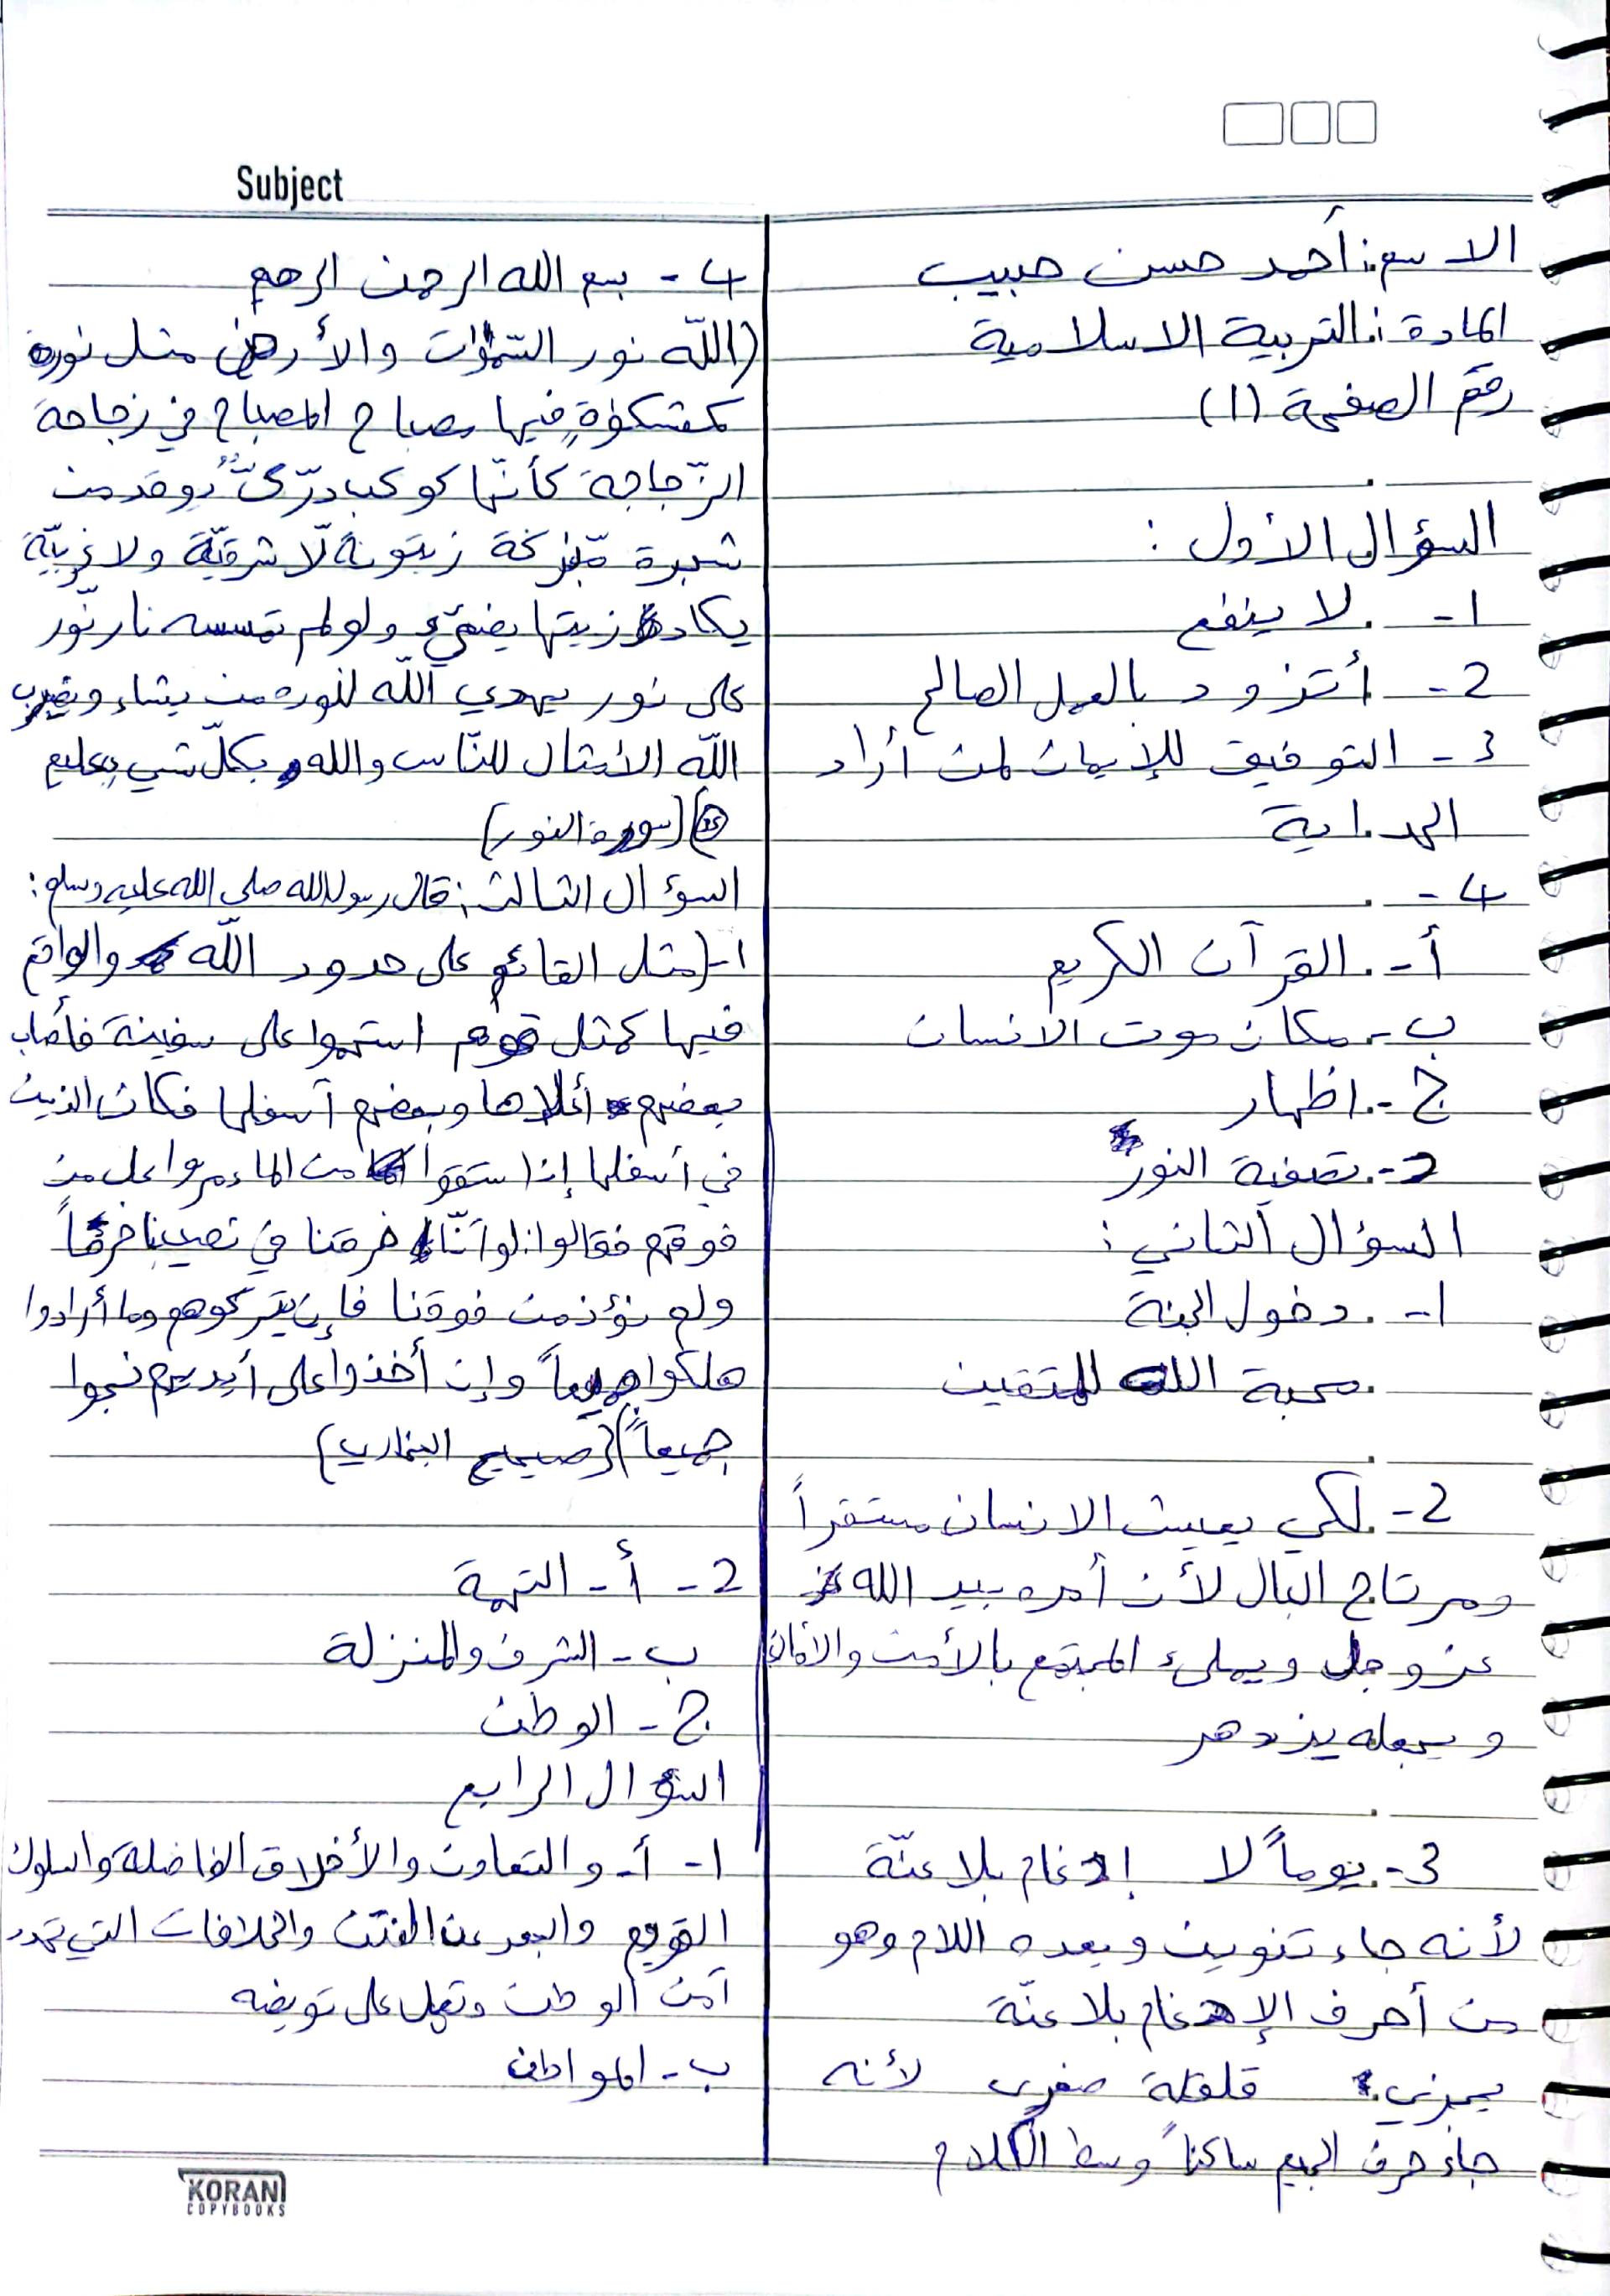 Subject
الاسم: أحمد حسن حبيب
المادة: التربية الاسلامية
رقم الصفحة (1)
السؤال الأول:
1- لا ينفع
2- أتزود بالعمل الصالح
3- التوفيق للإيمان لمن أراد
الهداية
4-
أ- القرآن الكريم
ب- مكان موت الانسان
ج- اظهار
د- تصفية النور
السؤال الثاني:
1- دخول الجنة
محبة الله للمتقين
2- لكي يعيش الانسان مستقراً
ومرتاح البال لأن أمره بيد الله
عز وجل ويملىء المجتمع بالأمن والأمان
ويجعله يزدهر
3- يوماً لا إدغام بلا غنّة
لأنه جاء تنوين وبعده اللام وهو
من أحرف الإدغام بلا غنّة
يجزي: قلقلة صغرى لأنه
جاء حرف الجيم ساكناً وسط الكلام
4- بسم الله الرحمن الرحيم
(اللّه نور السّمٰوٰت والأرض مثل نوره
كمشكوٰةٍ فيها مصباح المصباح في زجاجة
الزّجاجة كأنّها كوكب درّىٌّ يوقد من
شجرة مّبٰركة زيتونة لّا شرقيّة ولا غربيّة
يكاد زيتها يضيٓء ولو لم تمسسه نار نّور
على نور يهدي اللّه لنوره من يشاء ويضرب
اللّه الأمثال للنّاس والله بكلّ شيء عليم
(35)) (سورة النور)
السؤال الثالث: قال رسول الله صلى الله عليه وسلم:
1- (مثل القائم على حدود اللّه والواقع
فيها كمثل قوم استهموا على سفينة فأصاب
بعضهم أعلاها وبعضهم أسفلها فكان الذين
في أسفلها إذا ستقوا من الماء مروا على من
فوقهم فقالوا: لو أنّا خرقنا في نصيبنا خرقاً
ولم نؤذ من فوقنا فإن يتركوهم وما أرادوا
هلكوا جميعاً وإن أخذوا على أيديهم نجوا
جميعاً) (صحيح البخاري)
2- أ- التهمة
ب- الشرف والمنزلة
ج- الوطن
السؤال الرابع
1- أ- والتعاون والأخلاق الفاضلة والسلوك
القويم والبعد عن الفتن والخلافات التي تهدد
أمن الوطن وتعمل على تقويضه
ب- المواطن
KORAN
COPYBOOKS